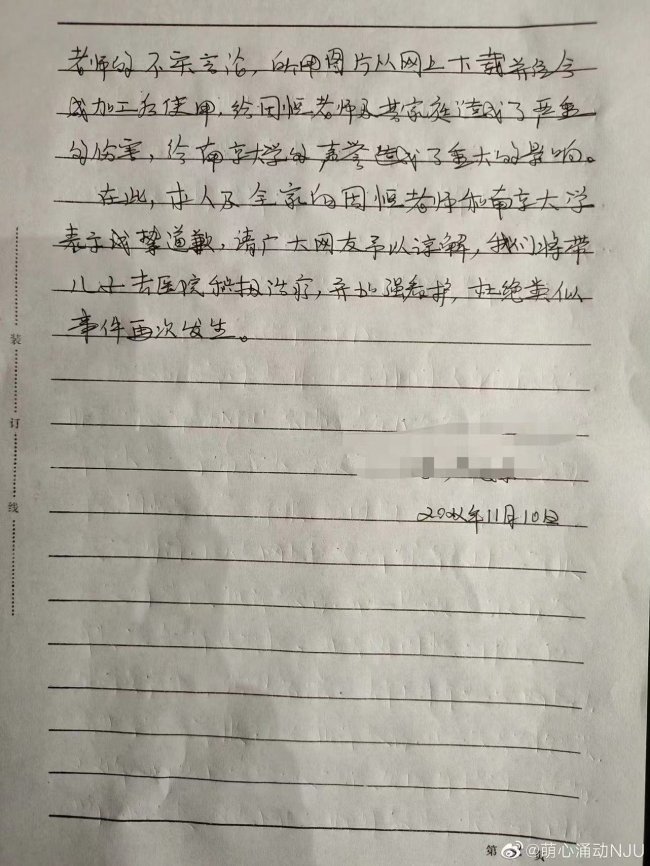 老师的不实言论，所用图片从网上下载并经合
成加工后使用，给周恒老师及其家庭造成了严重
的伤害，给南京大学的声誉造成了重大的影响。
在此，本人及全家向周恒老师和南京大学
表示诚挚道歉，请广大网友予以谅解，我们将带
儿子去医院积极治疗，并加强看护，杜绝类似
事件再次发生。
年11月10日
装
订
线
第
页
@萌心涌动NJU